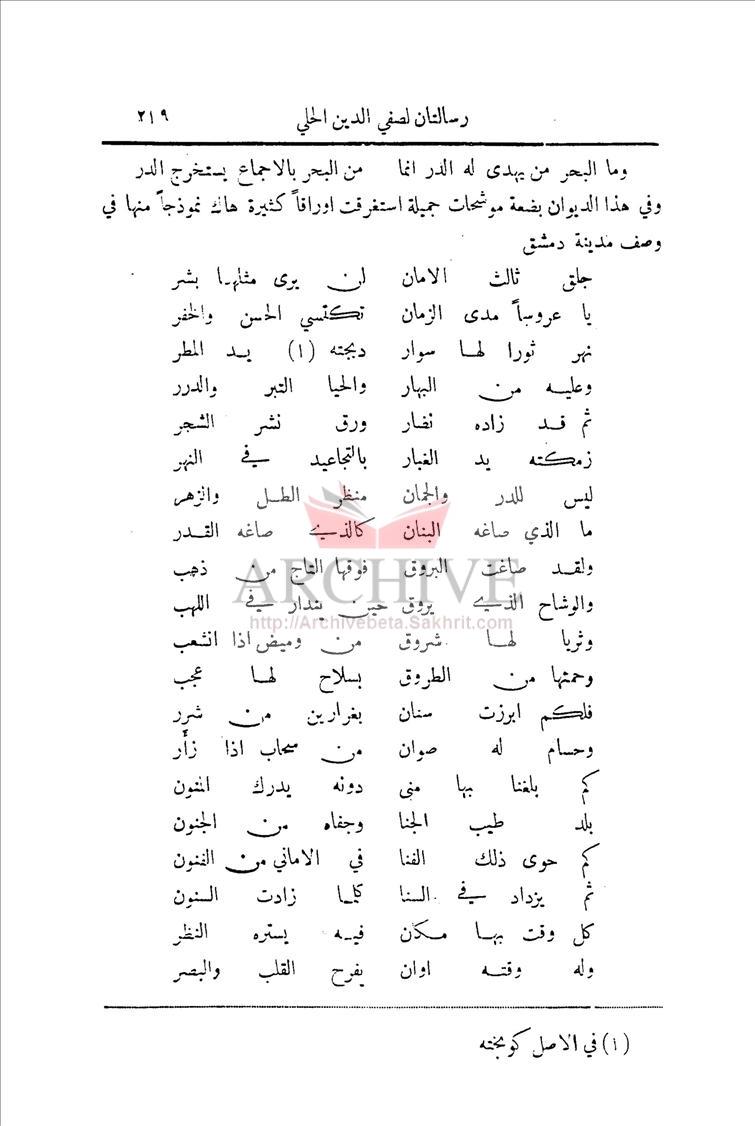 رسالتان لصفي الدين الحلي ٢١٩
وما البحر من يهدى له الدر انما من البحر بالاجماع يستخرج الدر
وفي هذا الديوان بضعة موشحات جميلة استغرقت اوراقاً كثيرة هاك نموذجاً منها في
وصف مدينة دمشق
جلق ثالث الامان لن يرى مثلها بشر
يا عروساً مدى الزمان تكتسي الحسن والخفر
نهر ثورا لها سوار دبجته (١) يد المطر
وعليه من البهار والحيا التبر والدرر
ثم قد زاده نضار ورق نشر الشجر
زمكته يد الغبار بالتجاعيد في النهر
ليس للدر والجمان منظر الطل والزهر
ما الذي صاغه البنان كالذي صاغه القدر
ولقد صاغت البروق فوقها التاج من ذهب
والوشاح الذي يروق حين يندار في اللهب
وثريا لها شروق من وميض اذا انشعب
وحمتها من الطروق بسلاح لها عجب
فلكم ابرزت سنان بغرارين من شرر
وحسام له صوان من سحاب اذا زأر
كم بلغنا بها منى دونه يدرك المنون
بلد طيب الجنا وجفاه من الجنون
كم حوى ذلك الفنا في الاماني من الفنون
ثم يزداد في السنا كلما زادت السنون
كل وقت بها مكان فيه يستره النظر
وله وقته اوان يفرح القلب والبصر
(١) في الاصل كوبخته
ARCHIVE
http://Archivebeta.Sakhrit.com